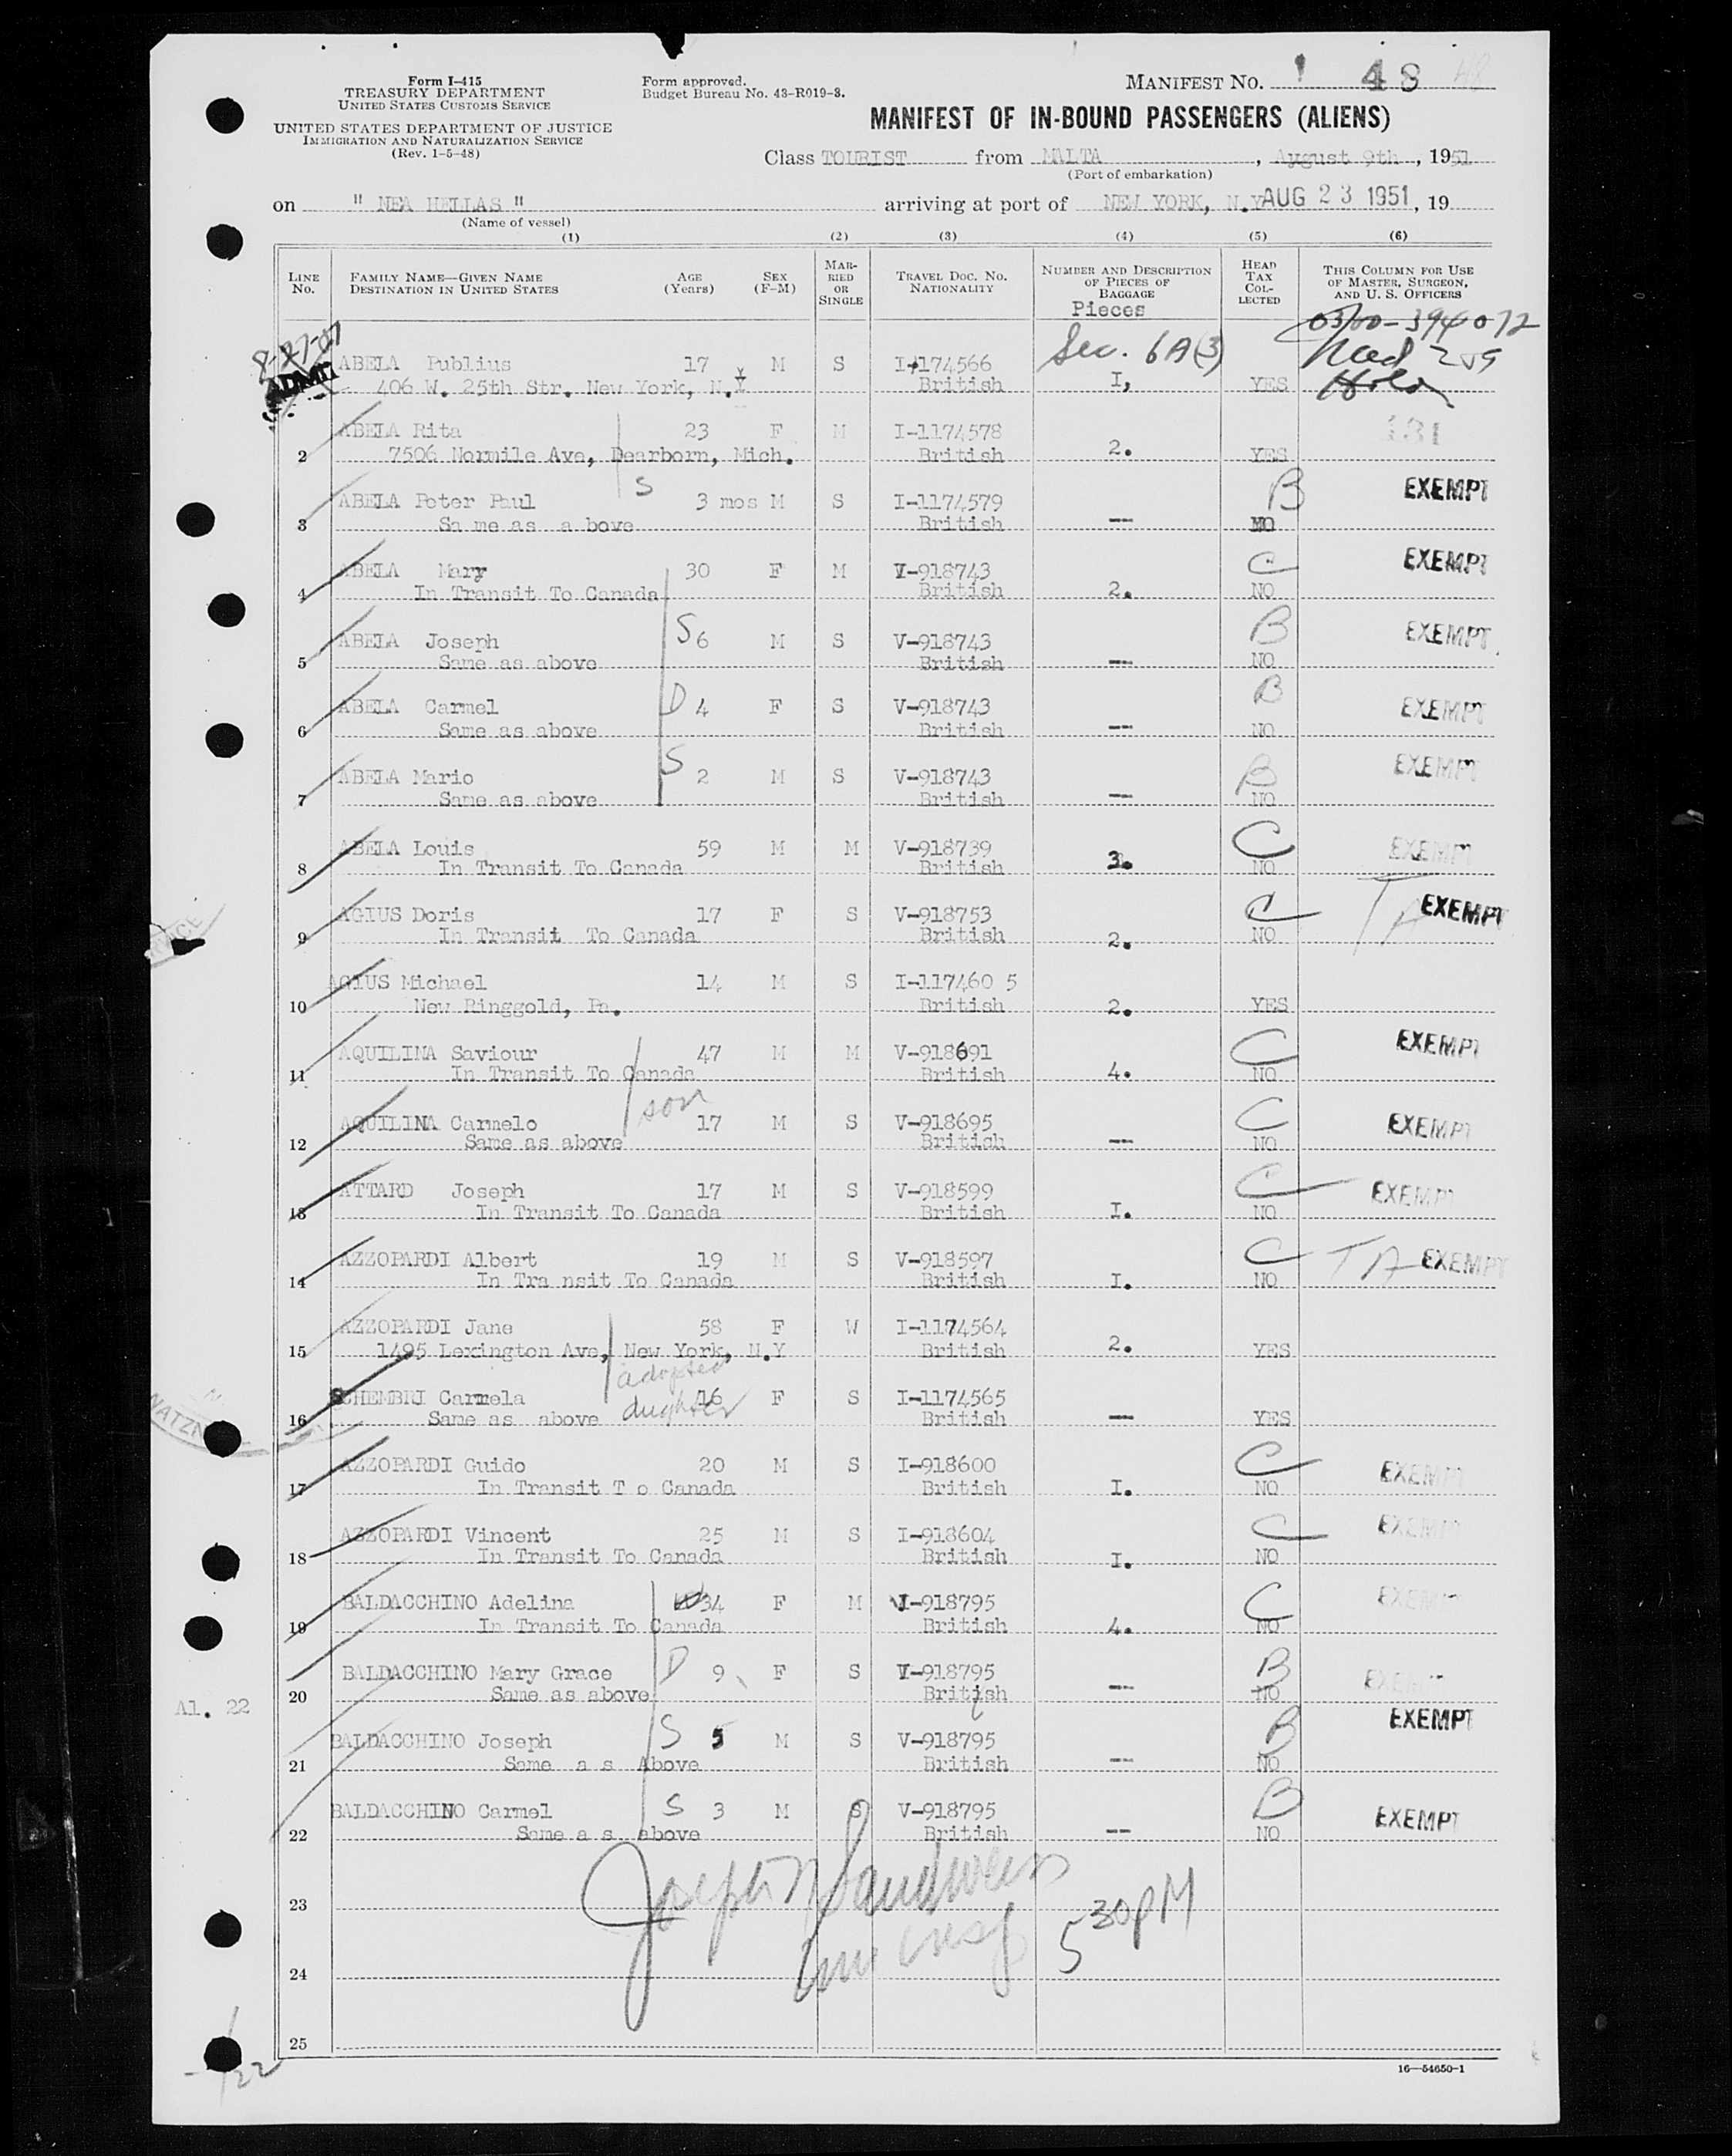 Form I-415
TREASURY DEPARTMENT
UNITED STATES CUSTOMS SERVICE
UNITED STATES DEPARTMENT OF JUSTICE
IMMIGRATION AND NATURALIZATION SERVICE
(Rev. 1-5-48)
Form approved.
Budget Bureau No. 43-R019-3.
MANIFEST NO. 48
MANIFEST OF IN-BOUND PASSENGERS (ALIENS)
Class TOURIST from MALTA, August 9th, 1951
(Port of embarkation)
on " NEA HELLAS " arriving at port of NEW YORK, N.Y AUG 23 1951, 19
(Name of vessel)
(1) (2) (3) (4) (5) (6)
LINE NO. FAMILY NAME—GIVEN NAME DESTINATION IN UNITED STATES AGE (Years) SEX (F-M) MARRIED OR SINGLE TRAVEL DOC. NO. NATIONALITY NUMBER AND DESCRIPTION OF PIECES OF BAGGAGE HEAD TAX COLLECTED THIS COLUMN FOR USE OF MASTER, SURGEON, AND U. S. OFFICERS
Pieces
ABELA Publius 17 M S I-174566 Sec. 6A(3)
406 W. 25th Str. New York, N.Y British I, YES
ABELA Rita 23 F M I-1174578 131
2 7506 Normile Ave, Dearborn, Mich. British 2. YES
ABELA Peter Paul S 3 mos M S I-1174579 B EXEMPT
3 Sa me as a bove British -- NO
ABELA Mary 30 F M V-918743 C EXEMPT
4 In Transit To Canada British 2. NO
ABELA Joseph S 6 M S V-918743 B EXEMPT
5 Same as above British -- NO
ABELA Carmel D 4 F S V-918743 B EXEMPT
6 Same as above British -- NO
ABELA Mario S 2 M S V-918743 B EXEMPT
7 Same as above British -- NO
ABELA Louis 59 M M V-918739 C EXEMPT
8 In Transit To Canada British 3. NO
AGIUS Doris 17 F S V-918753 C TA EXEMPT
9 In Transit To Canada British 2. NO
AGIUS Michael 14 M S I-117460 5
10 New Ringgold, Pa. British 2. YES
AQUILINA Saviour 47 M M V-918691 C EXEMPT
11 In Transit To Canada British 4. NO
AQUILINA Carmelo son 17 M S V-918695 C EXEMPT
12 Same as above British -- NO
ATTARD Joseph 17 M S V-918599 C EXEMPT
13 In Transit To Canada British I. NO
AZZOPARDI Albert 19 M S V-918597 C TA EXEMPT
14 In Tra nsit To Canada British I. NO
AZZOPARDI Jane 58 F W I-1174564
15 1495 Lexington Ave, New York, N.Y British 2. YES
adopted
SCHEMBRI Carmela 16 F S I-1174565
16 Same as above dughter British -- YES
AZZOPARDI Guido 20 M S I-918600 C EXEMPT
17 In Transit T o Canada British I. NO
AZZOPARDI Vincent 25 M S I-918604 C EXEMPT
18 In Transit To Canada British I. NO
BALDACCHINO Adelina 34 F M V-918795 C EXEMPT
19 In Transit To Canada British 4. NO
BALDACCHINO Mary Grace D 9 F S V-918795 B EXEMPT
20 Same as above British -- NO
Al. 22
BALDACCHINO Joseph S 5 M S V-918795 B EXEMPT
21 Same a s Above British -- NO
BALDACCHINO Carmel S 3 M S V-918795 B EXEMPT
22 Same a s above British -- NO
23 Joseph 5 30 PM
24
25
22
16—54650-1